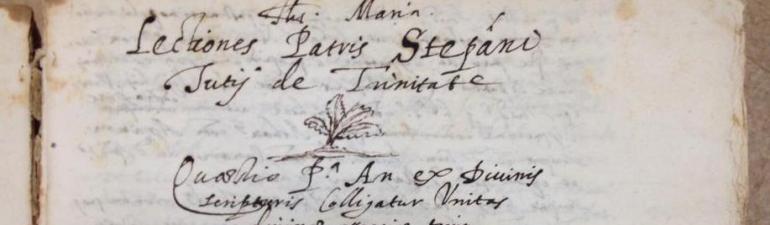 Jhs. Maria.
Lectiones Patris Stepáni
Tutij de Trinitate
Quæstio P.ª An ex Divinis
scripturis Colligatur Unitas